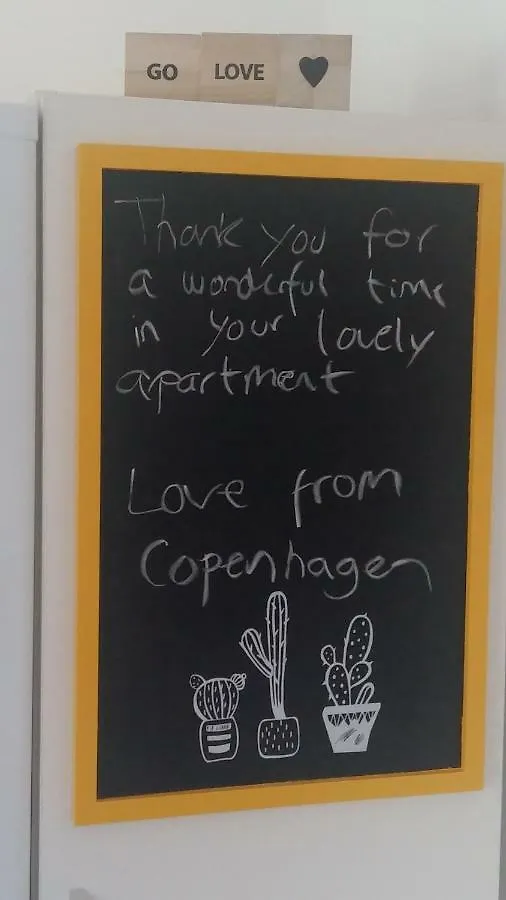 GO LOVE ♥
Thank you for
a wonderful time
in your lovely
apartment
Love from
Copenhagen